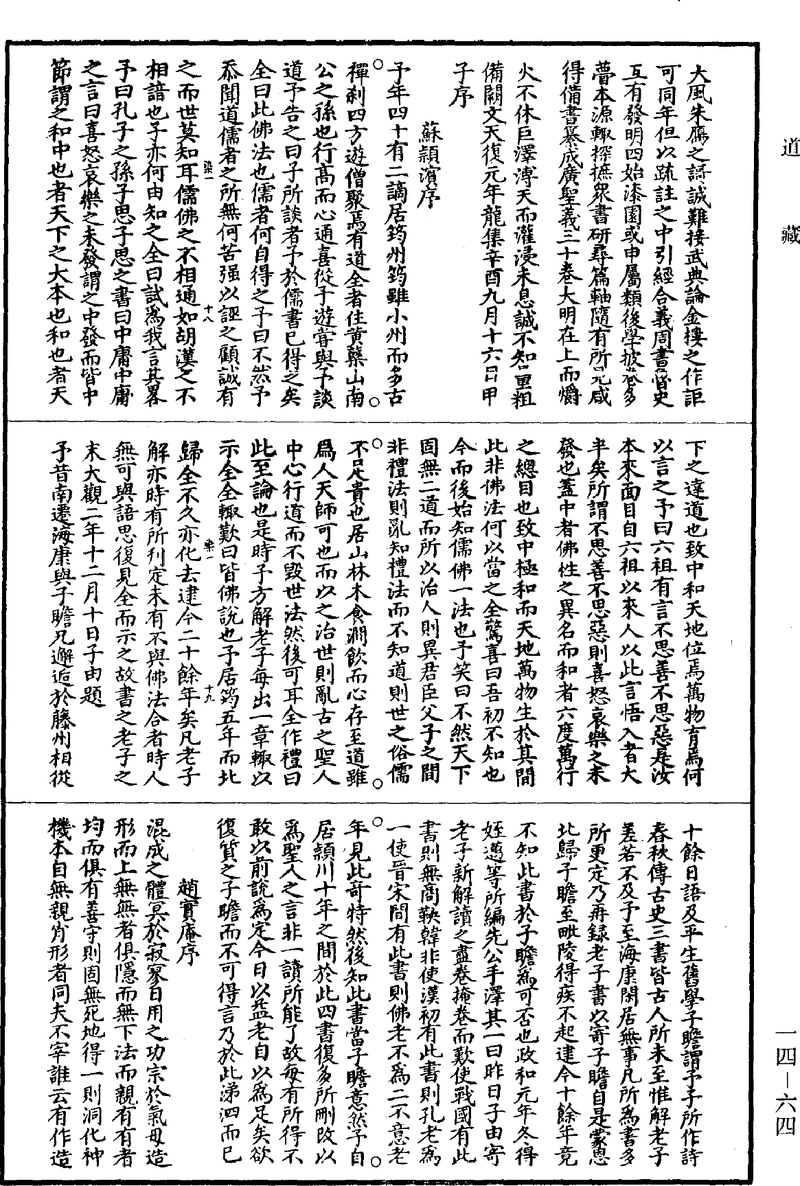 道藏
大風朱鴈之謌誠難接武典論金樓之作詎
可同年但以疏註之中引經合義周書嘗史
互有發明四始漆園或申屬類後學披卷多
瞢本源輙採摭衆書研尋篇軸隨有所見咸
得備書纂成廣聖義三十卷大明在上而爝
火不休巨澤漙天而灌浸未息誠不知量粗
備闕文天復元年龍集辛酉九月十六日甲
子序
蘇頴濱序
予年四十有二謫居筠州筠雖小州而多古
禪刹四方遊僧聚焉有道全者住黄蘗山南
公之孫也行高而心通喜從予遊嘗與予談
道予告之曰子所談者予於儒書已得之矣
全曰此佛法也儒者何自得之予曰不然予
忝聞道儒者之所無何苦强以誣之顧誠有
十八
之而世莫知耳儒佛之不相通如胡漢之不
相諳也子亦何由知之全曰試爲我言其畧
予曰孔子之孫子思子思之書曰中庸中庸
之言曰喜怒哀樂之未發謂之中發而皆中
節謂之和中也者天下之大本也和也者天
下之達道也致中和天地位焉萬物育焉何
以言之予曰六祖有言不思善不思惡是汝
本來面目自六祖以來人以此言悟入者大
半矣所謂不思善不思惡則喜怒哀樂之未
發也蓋中者佛性之異名而和者六度萬行
之總目也致中極和而天地萬物生於其間
此非佛法何以當之全驚喜曰吾初不知也
今而後始知儒佛一法也予笑曰不然天下
固無二道而所以治人則異君臣父子之間
非禮法則亂知禮法而不知道則世之俗儒
不足貴也居山林木食澗飲而心存至道雖
爲人天師可也而以之治世則亂古之聖人
中心行道而不毁世法然後可耳全作禮曰
此至論也是時予方解老子每出一章輙以
示全全輙歎曰皆佛說也予居筠五年而北
十九
歸全不久亦化去逮今二十餘年矣凡老子
解亦時有所刊定未有不與佛法合者時人
無可與語思復見全而示之故書之老子之
末大觀二年十二月十日子由題
予昔南遷海康與子瞻兄邂逅於藤州相從
十餘日語及平生舊學子瞻謂予子所作詩
春秋傳古史三書皆古人所未至惟解老子
差若不及予至海康閑居無事凡所爲書多
所更定乃再録老子書以寄子瞻自是蒙恩
北歸子瞻至毗陵得疾不起逮今十餘年竟
不知此書於子瞻爲可否也政和元年冬得
姪邁等所編先公手澤其一曰昨日子由寄
老子新解讀之盡卷掩卷而歎使戰國有此
書則無商鞅韓非使漢初有此書則孔老爲
一使晉宋間有此書則佛老不爲二不意老
年見此奇特然後知此書當子瞻意然予自
居頴川十年之間於此四書復多所刪改以
爲聖人之言非一讀所能了故每有所得不
敢以前說爲定今日以益老自以爲足矣欲
復質之子瞻而不可得言乃於此涕泗而已
趙實庵序
混成之體㝠於寂寥日用之功宗於氣母造
形而上無無者俱隱而無下法而親有有者
均而俱有善守則固無死地得一則洞化神
機本自無親肖形者同夫不宰誰云有作造
一四—六四